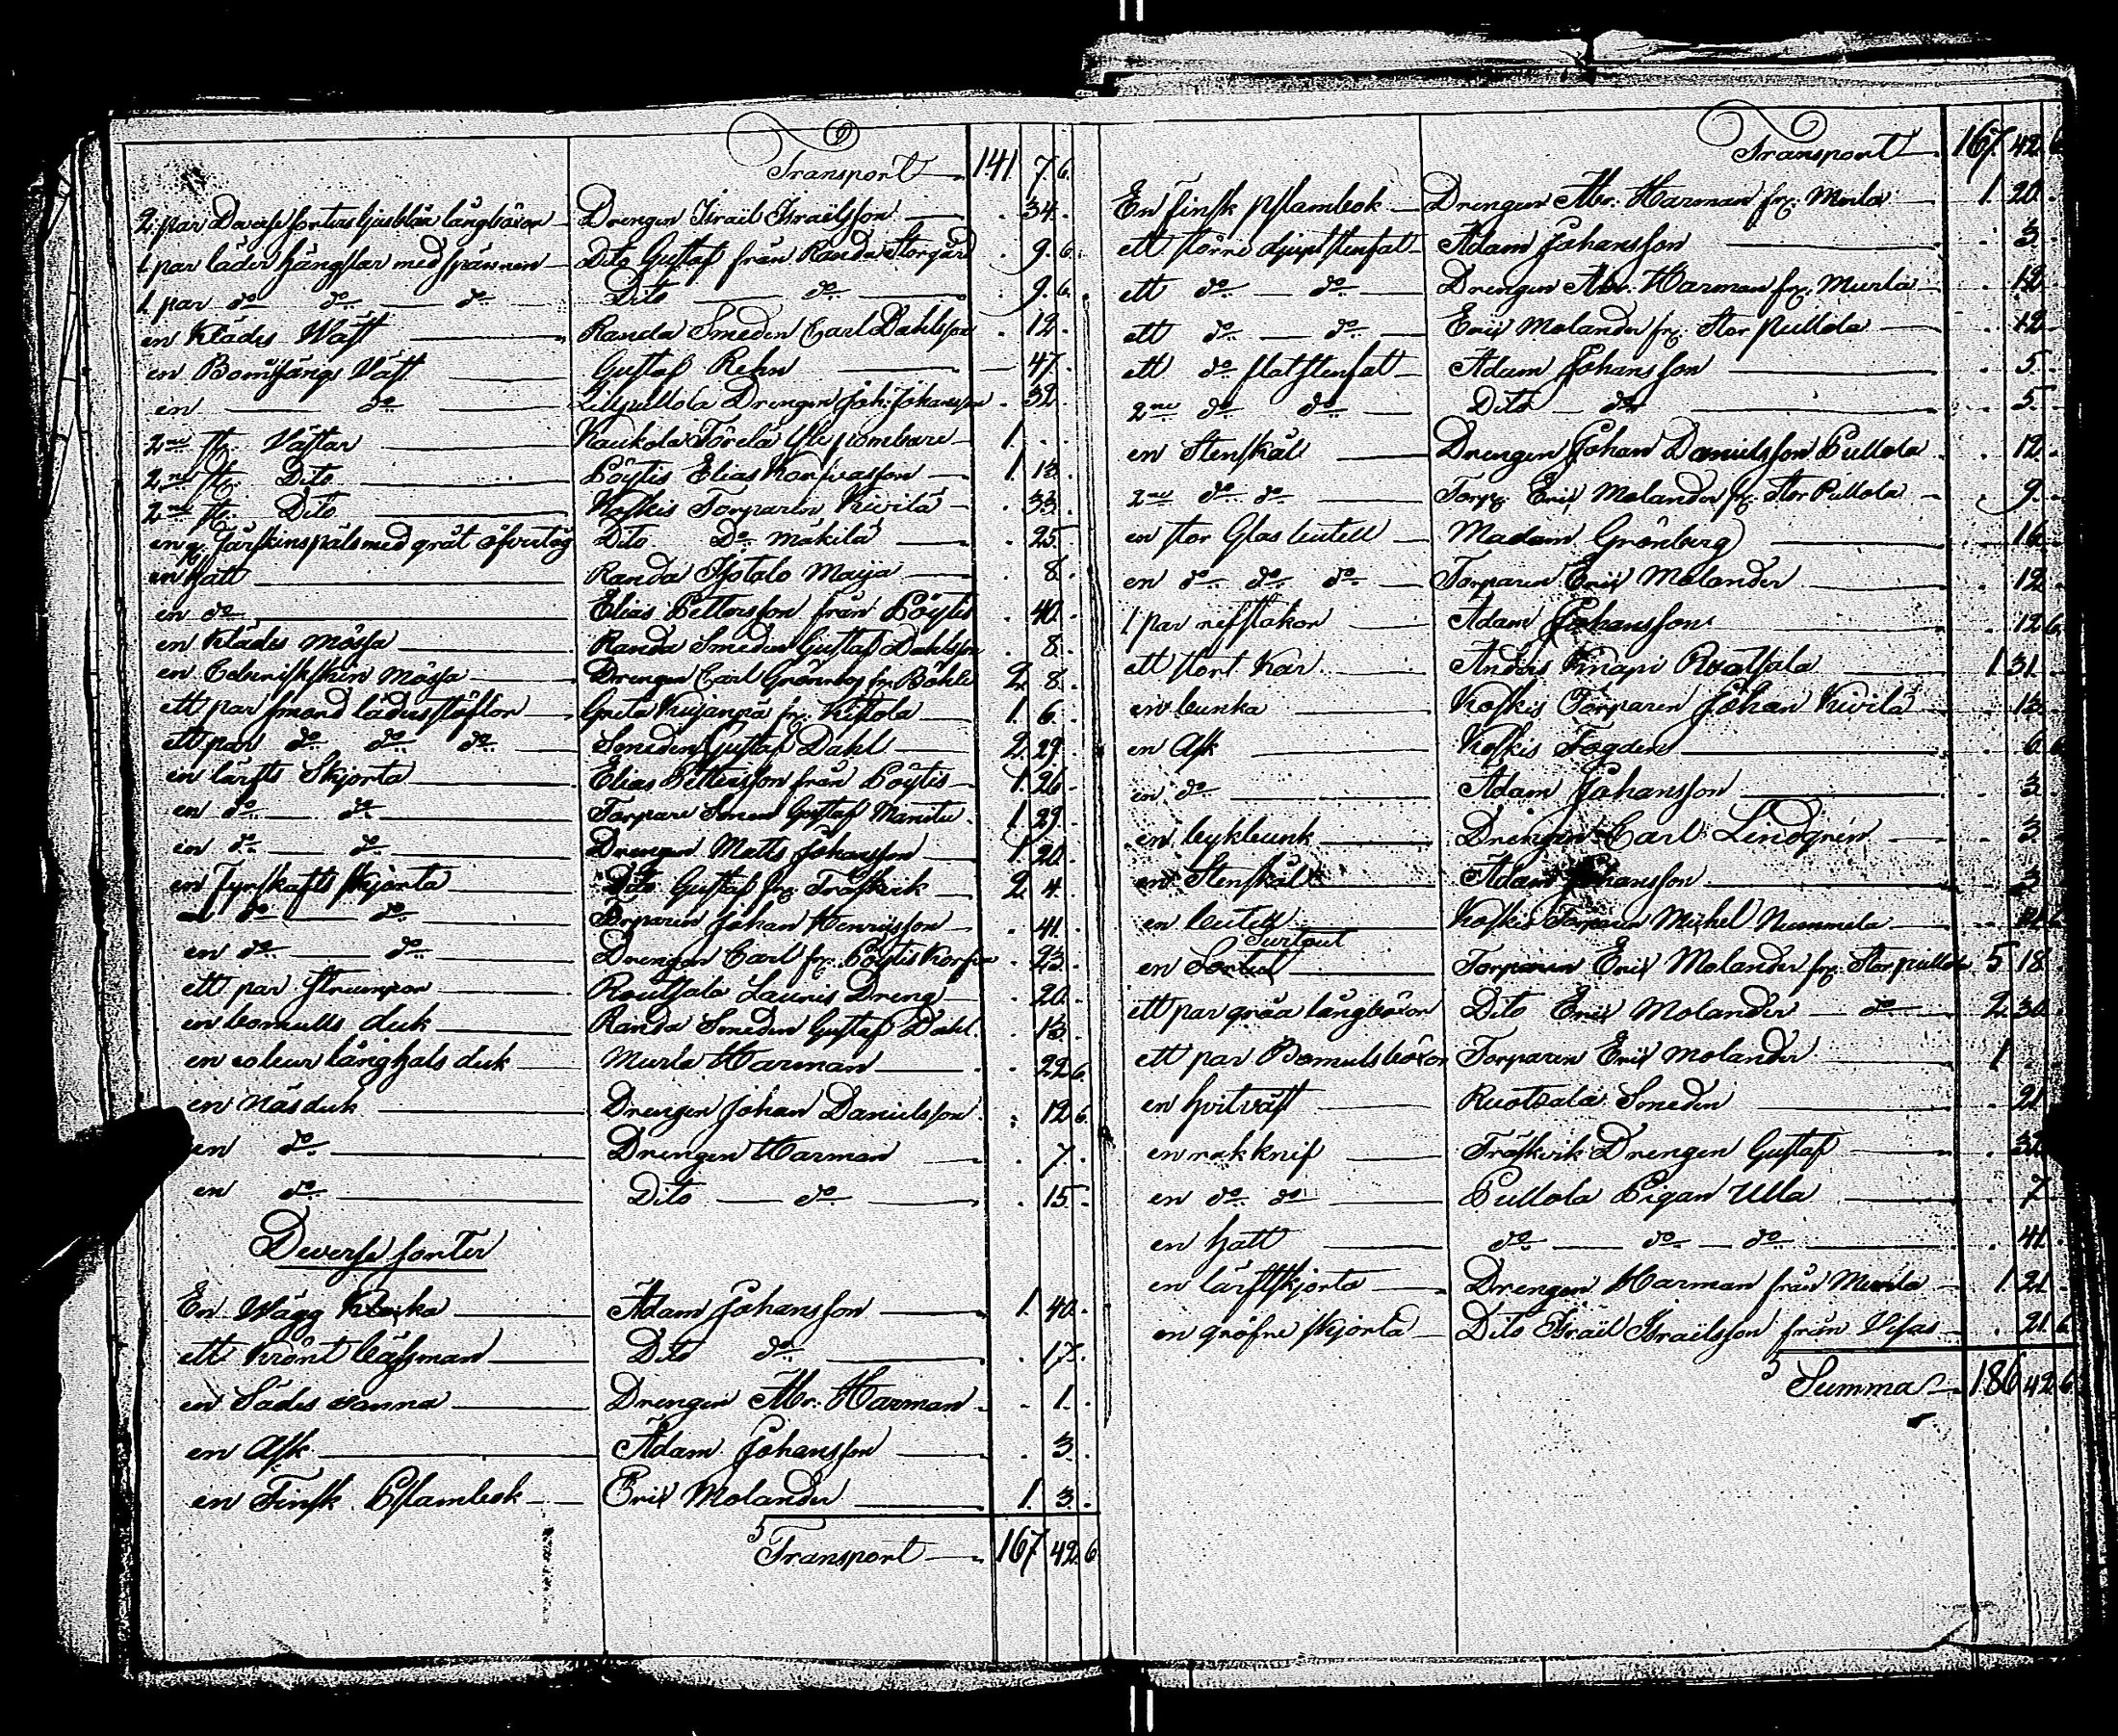 Transport 141. 7. 6.
2. par Diverse sorters ljusblåa långbåxor Drengen Israël Israëlsson . 34.
1 par läder hängslar med spännen Dito Gustaf från Randa Storgård . 9. 6.
1. par do do do Dito do . 9. 6.
en Klädes Wäst Randa Smeden Carl Dahlsson . 12.
en Bomsångs Väst Gustaf Rehn 47.
en do Lillpullola Drengen Joh: Johansson . 32.
2ne st. Västar Kaukola Törelä 1. . .
2ne st. Dito Pöytis Elias 1. 13.
2ne st. Dito Koskis Torparen Kivilä . 33.
en g: Fårskinspäls med gråt öfvertåg Dito Do Mäkilä . 25.
en hatt Randa Maija . 8.
en do Elias Pettersson från Pöytis . 40.
en Klädes mössa Randa Smeden Gustaf Dahlsson . 8.
en mössa Drengen Carl Grönroos fr. Böhle 2. 8.
ett par smord läderstöflor Greta fr: Kittola 1. 6.
ett par do do do Smeden Gustaf Dahl 2. 29.
en lärfts Skjorta Elias Pettersson från Pöytis 1. 26.
en do do Torpare Sonen Gustaf 1. 29.
en do do Drengen Matts Johansson 1. 20.
en Fyrskafts skjorta Dito Gustaf fr: Träskvik 2. 4.
en do do Torparen Johan Henricsson . 41.
en do do Drengen Carl fr: Pöytis . 23.
ett par strumpor Routsala Lauris Dreng . 20.
en bomulls duk Randa Smeden Gustaf Dahl . 13.
en coleur långhals duk Murla Harman . 22 6.
en Näsduk Drengen Johan Danielsson . 12 6.
en do Drengen Harman . 7.
en do Dito do . 15.
Diverse sorter
En Wägg Klocka Adam Johansson 1. 40.
ett krönt bässman Dito do . 17.
en Sädes kanna Drengen Abr: Harman . 1.
en Ask Adam Johansson . 3.
en Finsk Pslambok Eric Molander 1. 3.
Transport 167 42. 6
Transport 167. 42. 6
En finsk Pslambok Drengen Abr: Harman fr: Murla 1. 20.
ett större djupt stenfat Adam Johansson . 3.
ett do do Drengen Abr. Harman fr: Murla . 12.
ett do do Eric Molander fr: Stor Pullola . 12.
ett do flat stenfat Adam Johansson . 5.
2ne do do Dito do . 5.
en Stenskål Drengen Johan Danielsson Pullola . 12.
2ne do do Torp: Eric Molander fr: Stor Pullola 9.
en stor Glas butell Madam Grönberg 16.
en do do do Torparen Eric Molander 12.
1 par refstakor Adam Johansson . 12 6.
ett stort Kar Anders Knapi Routsala 1. 31.
en bunka Koskis Torparen Johan Kivilä 13.
en Ask Koskis Fogden 6. 6
en do Adam Johansson . 3.
en bykbunk Drengen Carl Lindgren 3.
en Stenskål Adam Johansson 3.
en butell Koskis Torparen Michel Nummela
Surtout
en Torparen Eric Molander fr. Storpullola 5 18.
ett par gråa långbåxor Dito Eric Molander do 2. 30.
ett par Bomulsbåxor Torparen Eric Molander 1
en hvit väst Ruotsala Smeden 21.
en rakknif Träskvik Drengen Gustaf . 32.
en do do Pullola Pigan Ulla 7
en hatt do do do . 41.
en lärftskjorta Drengen Harman från Murla 1. 21.
en gröfre skjorta Dito Israël Israëlsson från Visas . 21. 6
Summa 186 42. 6.